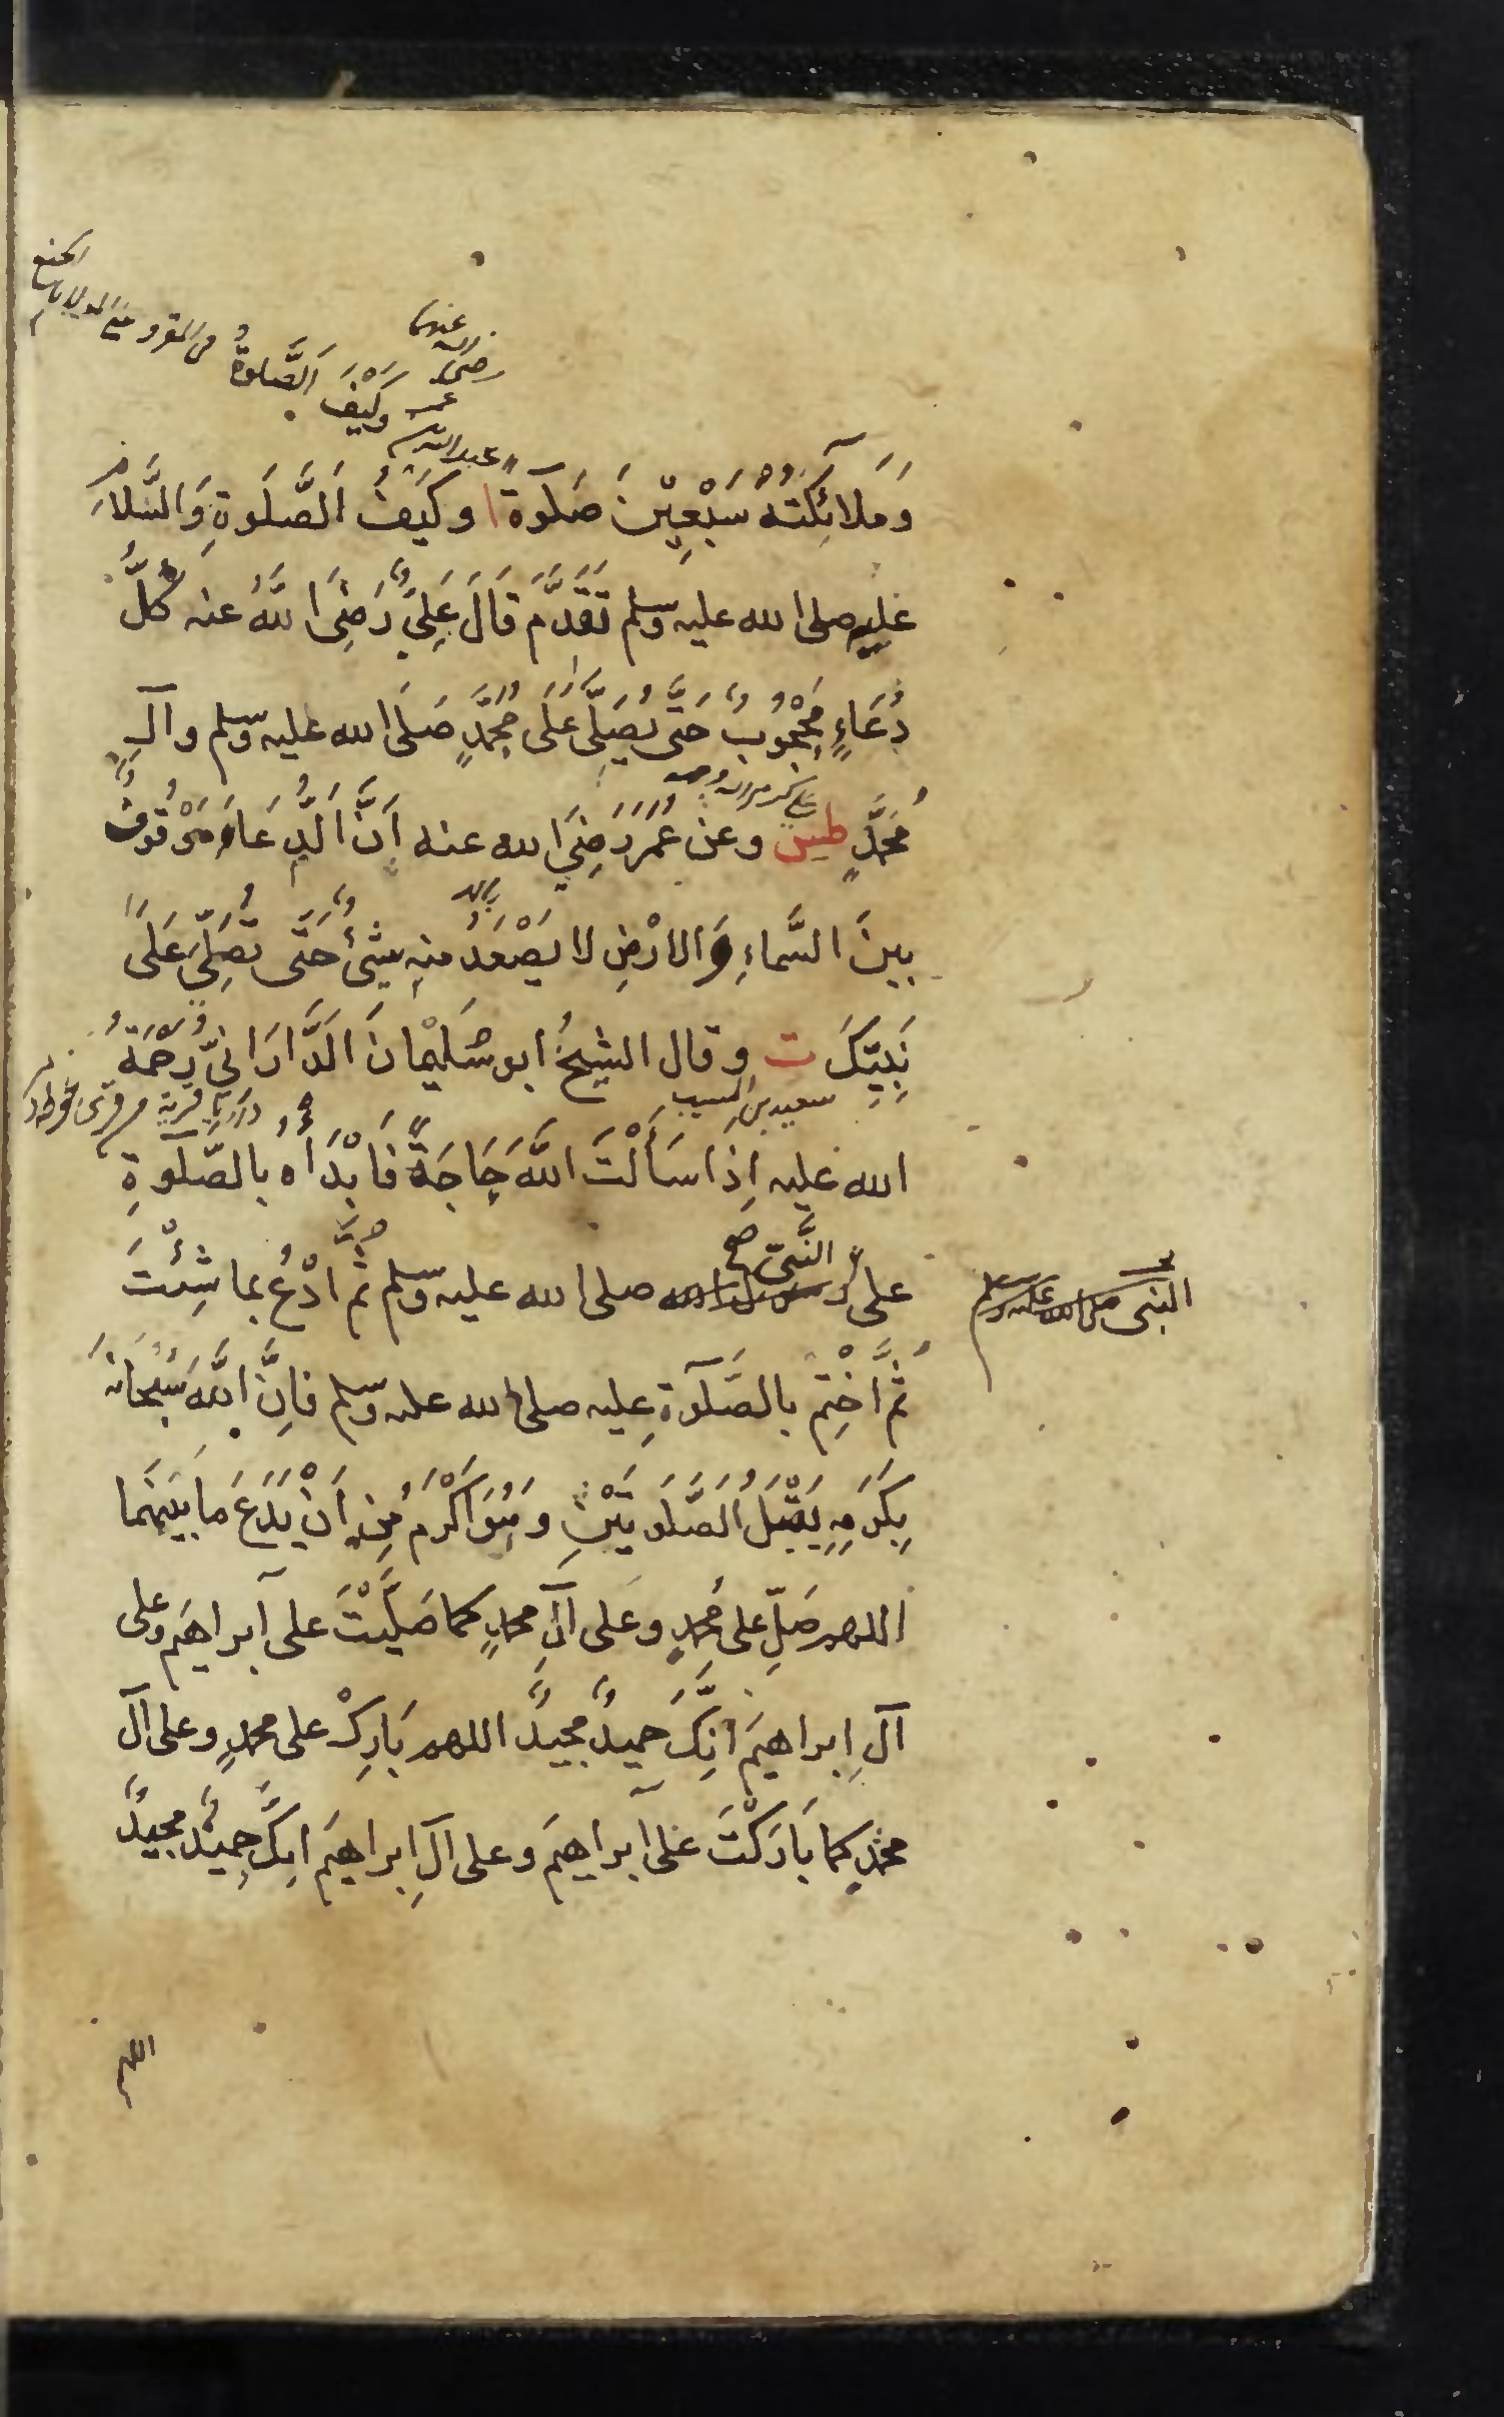 رضى الله عنهما
عبد الله بن عمر
وَكَيْفَ الصَّلوةُ
وَمَلَآئِكَتُهُ سَبْعِيْنَ صَلَوٰةً ا وَكَيْفُ اَلصَّلَوةِ وَالسَّلَامِ
عليهِ صلى الله عليه وسلم تَقَدَّمَ قَالَ عَلِيٌّ رَضِيَ اللهُ عنه كُلُّ
دُعَاءٍ مَحْجُوْبٌ حَتّٰى يُصَلّٰى عَلٰى مُحَمَّدٍ صَلَى الله عليه وسلم وآلِ
على كرم الله وجهه
مُحَمَّدٍ طس وعن عُمَرَ رَضِيَ الله عنه اَنَّ اَلدُّعَاءَ مَوْقُوفٌ
بينَ السَّماءِ وَالارْضِ لا يَصْعَدُ منهِ شَىْءٌ حَتّٰى تُصَلِّىَ عَلٰى
نَبِيِّكَ ت وقال الشيخُ ابو سُلَيْمانَ اَلدَّارَانِيُّ رَحْمَةُ
سعيد بن المسيب
الله عليه اِذَا سَأَلْتَ اللّٰهَ حَاجَةً فَابْدَأْهُ بالصَّلٰوةِ
النَّبىّ صح
على رسول الله صلى الله عليه وسلم ثُمَّ ادْعُ بما شِئْتَ
النبى صلى الله عليه وسلم
ثُمَّ اخْتِمْ بالصَّلٰوةِ عليه صلى الله عليه وسلم فاِنَّ اللّٰهَ سُبْحَانَهُ
بِكَرَمِهِ يَقْبَلُ الصَّلَوتَيْنِ وَهُوَ اَكْرَمُ مِنْ اَنْ يَدَعَ مَا بَيْنَهُمَا
اللهم صَلِّ على مُحمدٍ وعلى آلِ محمدٍ كما صَلَّيْتَ على ابراهيمَ وعلى
آلِ ابراهيمَ اِنَّكَ حميدٌ مجيدٌ اللهم بَارِكْ على محمدٍ وعلى آل
محمدٍ كما بَارَكْتَ على ابراهيمَ وعلى آلِ ابراهيمَ اِنَّكَ حميدٌ مجيدٌ
اللهم